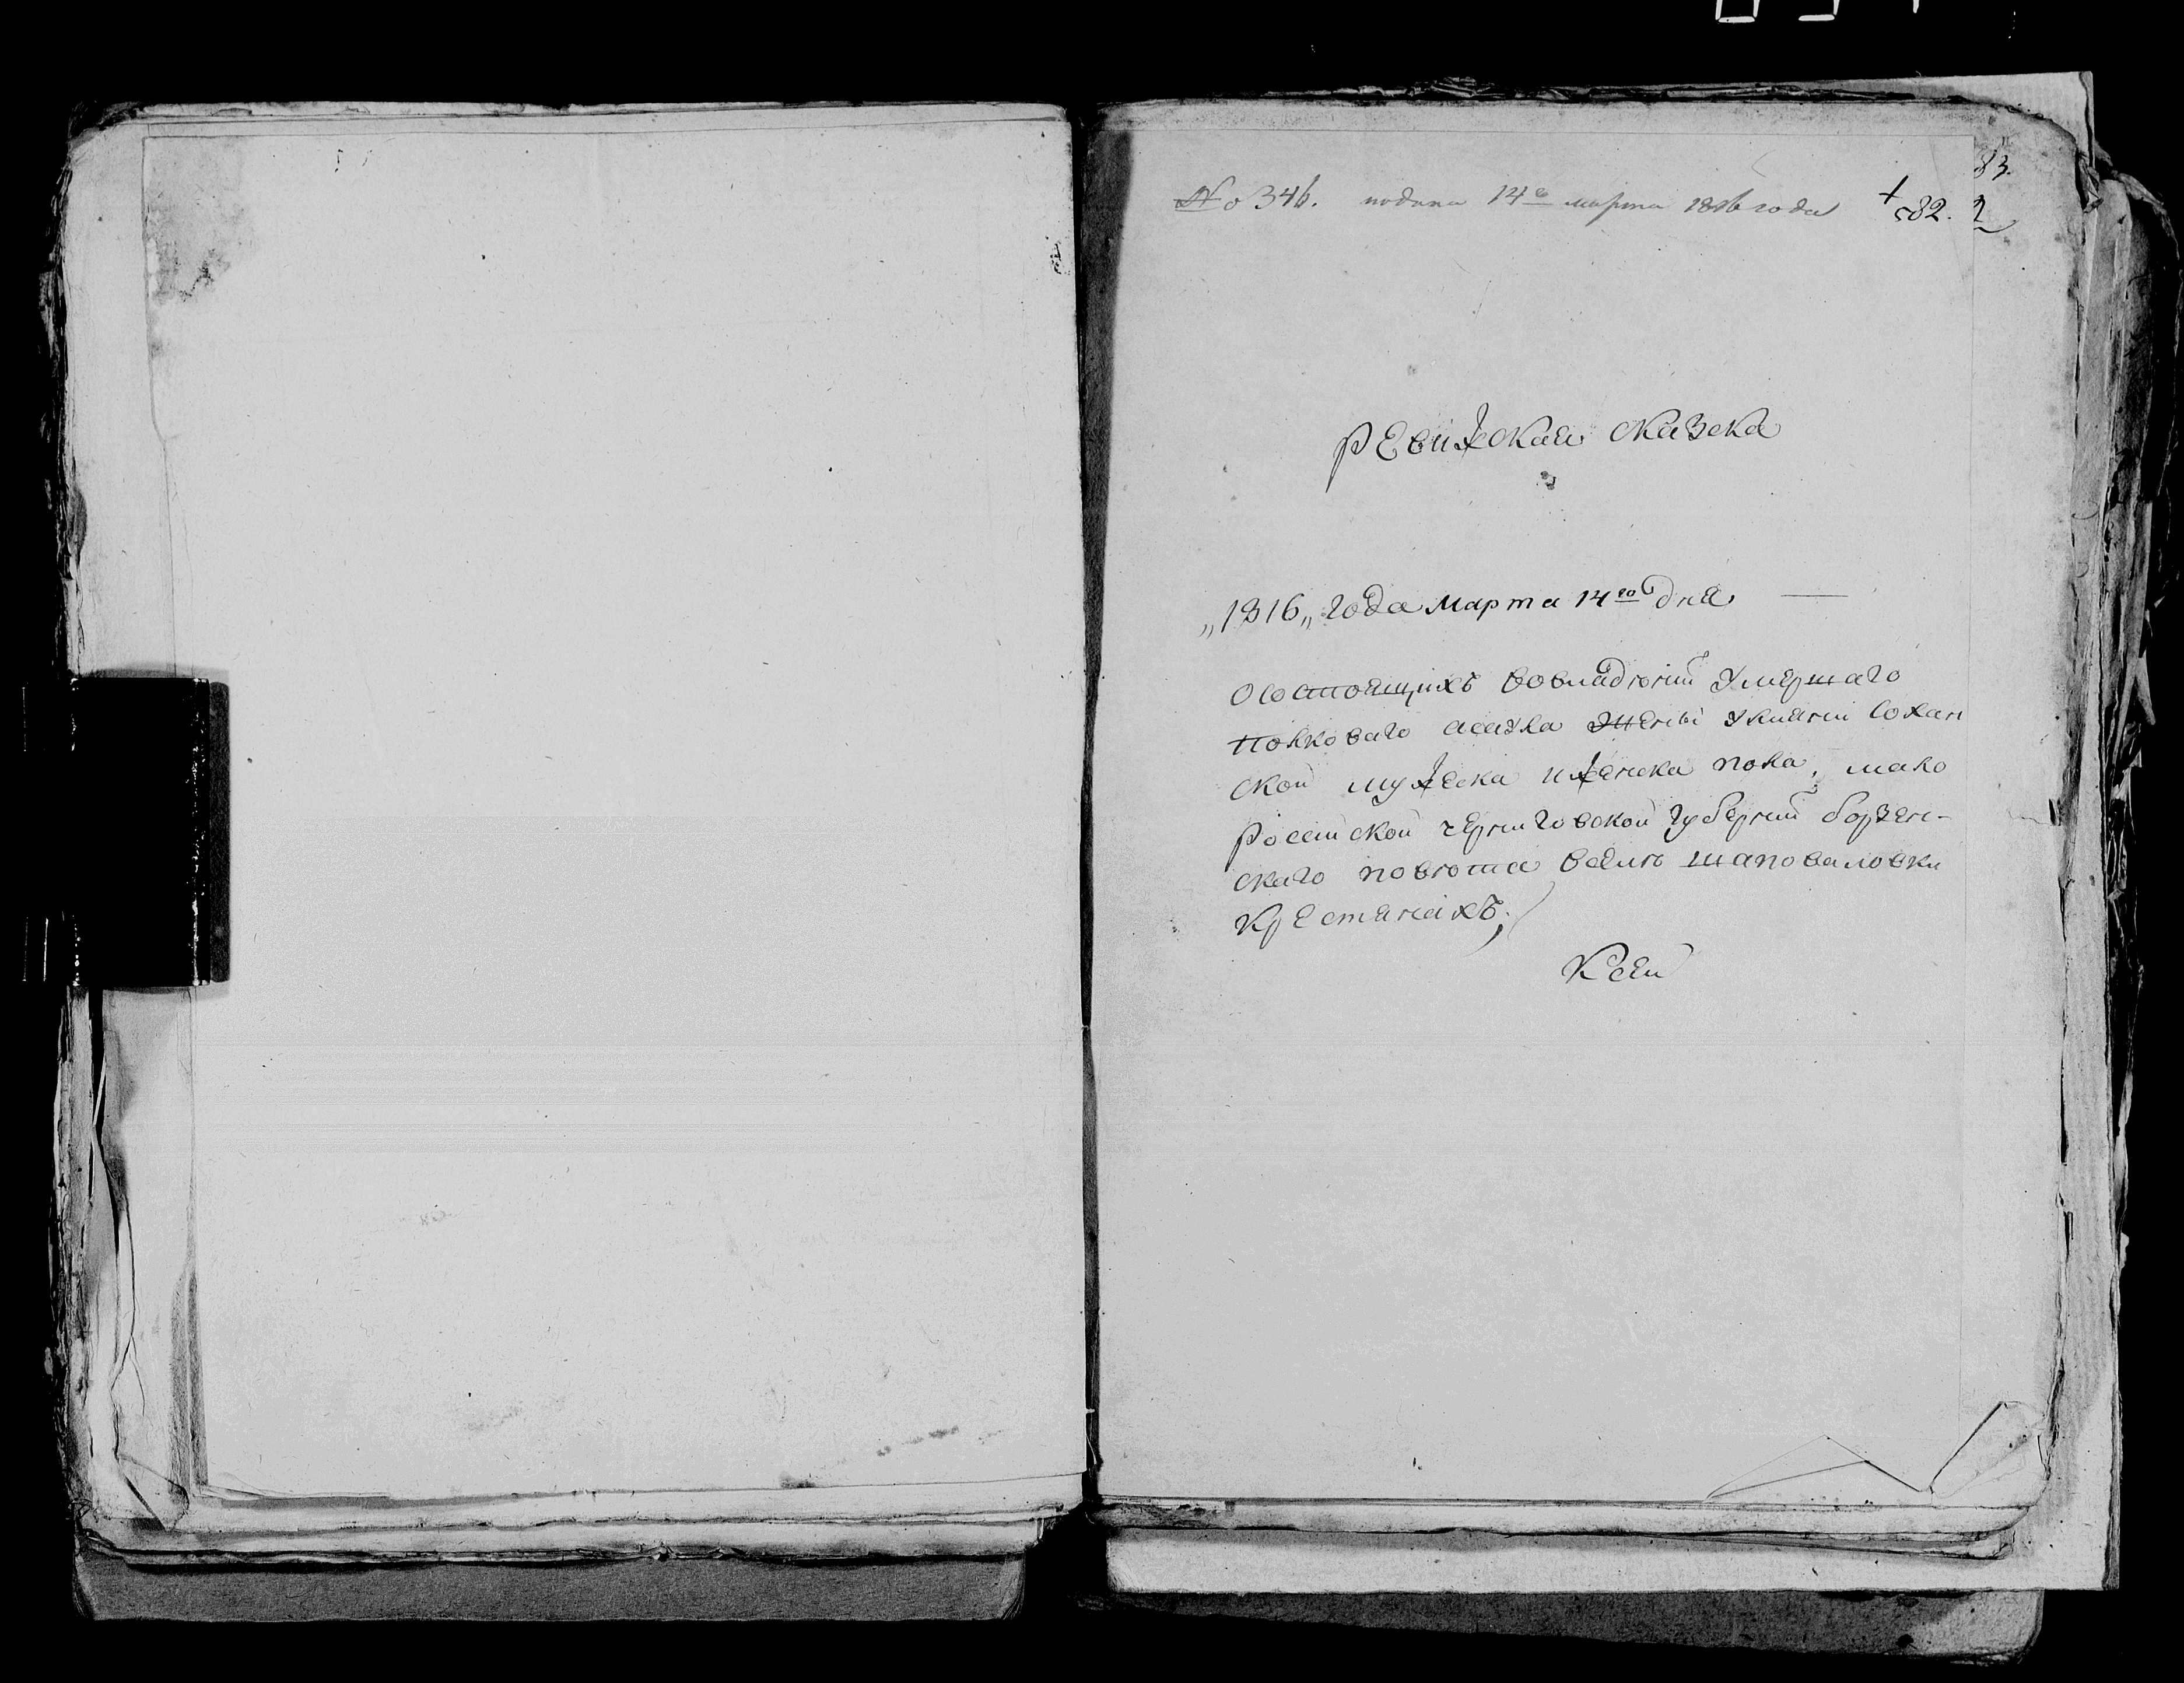 83.
№ 346. подана 14го марта 1816 года 582. 2
Ревижская сказка
„1816„ года марта 14го дня
Осостоящихъ вовладѣнии умершаго
полковаго асаула жены Сохан
ской мужеска иженска пола, мало
Российской черниговской губернии борзен-
скаго повѣта всѣлѣ шаповаловки
Крестянахъ;
Ксей